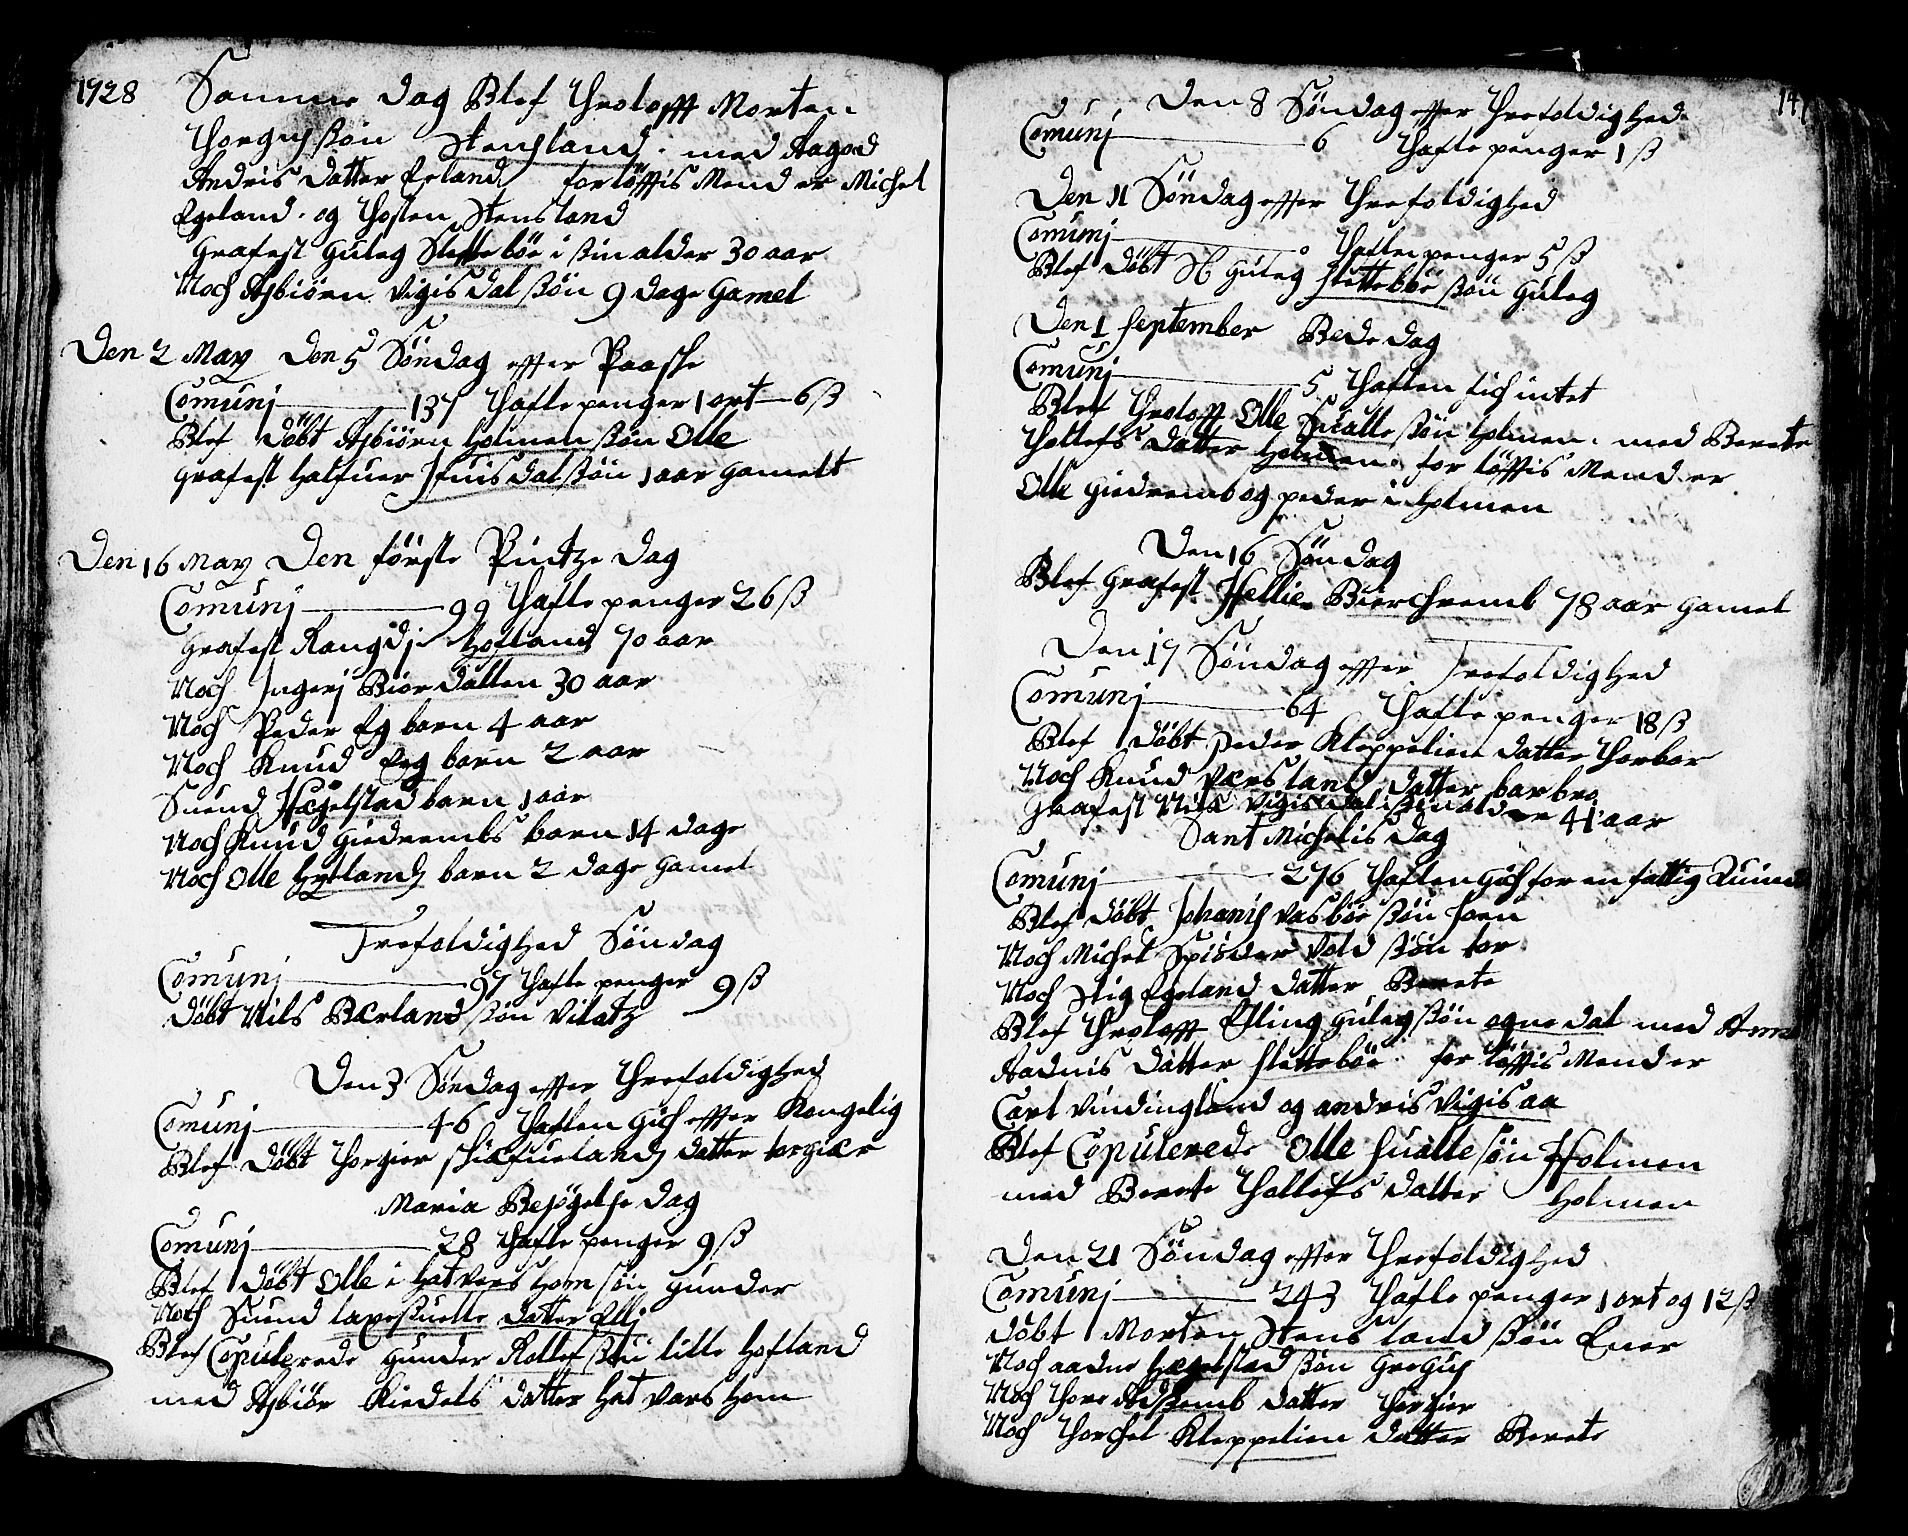 1728 Samme dag Blef Throlofft Morten
Thorgussøn Stensland. med Aagod
Andris datter Egland forlöfftis Mend er Michel
Egeland. og Thosten Stensland
Grafest Guleg Slettebøe i sin alder 30 aar
Noch Asbiørn Vigisdal ßøn 9 dage Gamel
Den 2 May Den 5 Söndag effter Paaske
Comunj 137 Tafle penger 1 ort 6 ß
Blef Döbt Asbiørn Holmen ßøn Olle
Grafest Halfuer Ifuisdal ßøn 1 aar Gamelt
Den 16 May Den förste Pintze dag
Comunj 99 Tafle penger 26 ß
Grafest Rangdj Hofland 70 aar
Noch Ingerj Bior datten 30 aar
Noch Peder Eg barn 4 aar
Noch Knud Egg barn 2 aar
Suend Hægelstad barn 1 aar
Noch Knud Giedrembs barn 14 dage
Noch Olle Hytland barn 2 dage Gamel
Trefoldighed Söndag
Comunj 97 Tafle penger 9 ß
Döbt Nils Bærland ßøn Vilatz
Den 3 Söndag effter Threfoldighed
Comunj 46 Taflen Gich effter Kongelig
Blef Döbt Thorgier skiæfueland datter torgiær
Maria Besøgelse dag
Comunj 28 Tafle penger 9 ß
Blef Döbt Olle i Hatvars Hom søn Gunder
Noch Suend laxesuelle datter Elli
Blef Copulerede Gunder Rollef ßøn lille Hofland
med Asbiör Kiedels datter Hatvars Hom
147
Den 8 Söndag effter Threfoldighed
Comunj 6 Tafle penger 1 ß
Den 11 Söndag effter Threfoldighed
Comunj 0 Taflen penger 5 ß
Blef Döbt Guleg slettebøe ßøn Guleg
Den 1 september Bede dag
Comunj 5 Taflen fich intet
Blef Throloft Olle Sualle ßøn Holmen. med Berete
Tollefs datter Holmen. for löffis Mend er
Olle Giedremb og peder i Holmen
Den 16 Söndag
Blef Grafest Hellie Bierchremb 78 aar Gamel
Den 17 Söndag effter Trefoldighed
Comunj 64 Tafle penger 18 ß
Blef Döbt peder Kleppelien datter Thorbor
Noch Knud Værsland datter barbra
Grafest Nils Vigisdal i sin alder 41 aar
Sant Michelis dag
Comunj 276 Taflen Gich for en fattig Quind
Blef Döbt Johanis Vasbøe ßøn soen
Noch Michel Spisder Vold ßøn tor
Noch Stig Egeland datter Berete
Blef Throlofft Esling Guleg ßøn ognedal med Anna
Aadnis datter slettebøe. for löffis Mend er
Carl Vindingland og andris Vigisaa
Blef Copulerede Olle sualle søn Holmen
med Berete Tollefs datter Holmen
Den 21 Söndag effter Threfoldighed
Comunj 243 Tafle penger 1 ort og 12 ß
Döbt Morten Stensland ßøn Ener
Noch aadne Hægelstad ßøn Gregus
Noch Thore Adßemb datter Thorgier
Noch Thorchel Kleppelien datter Berete